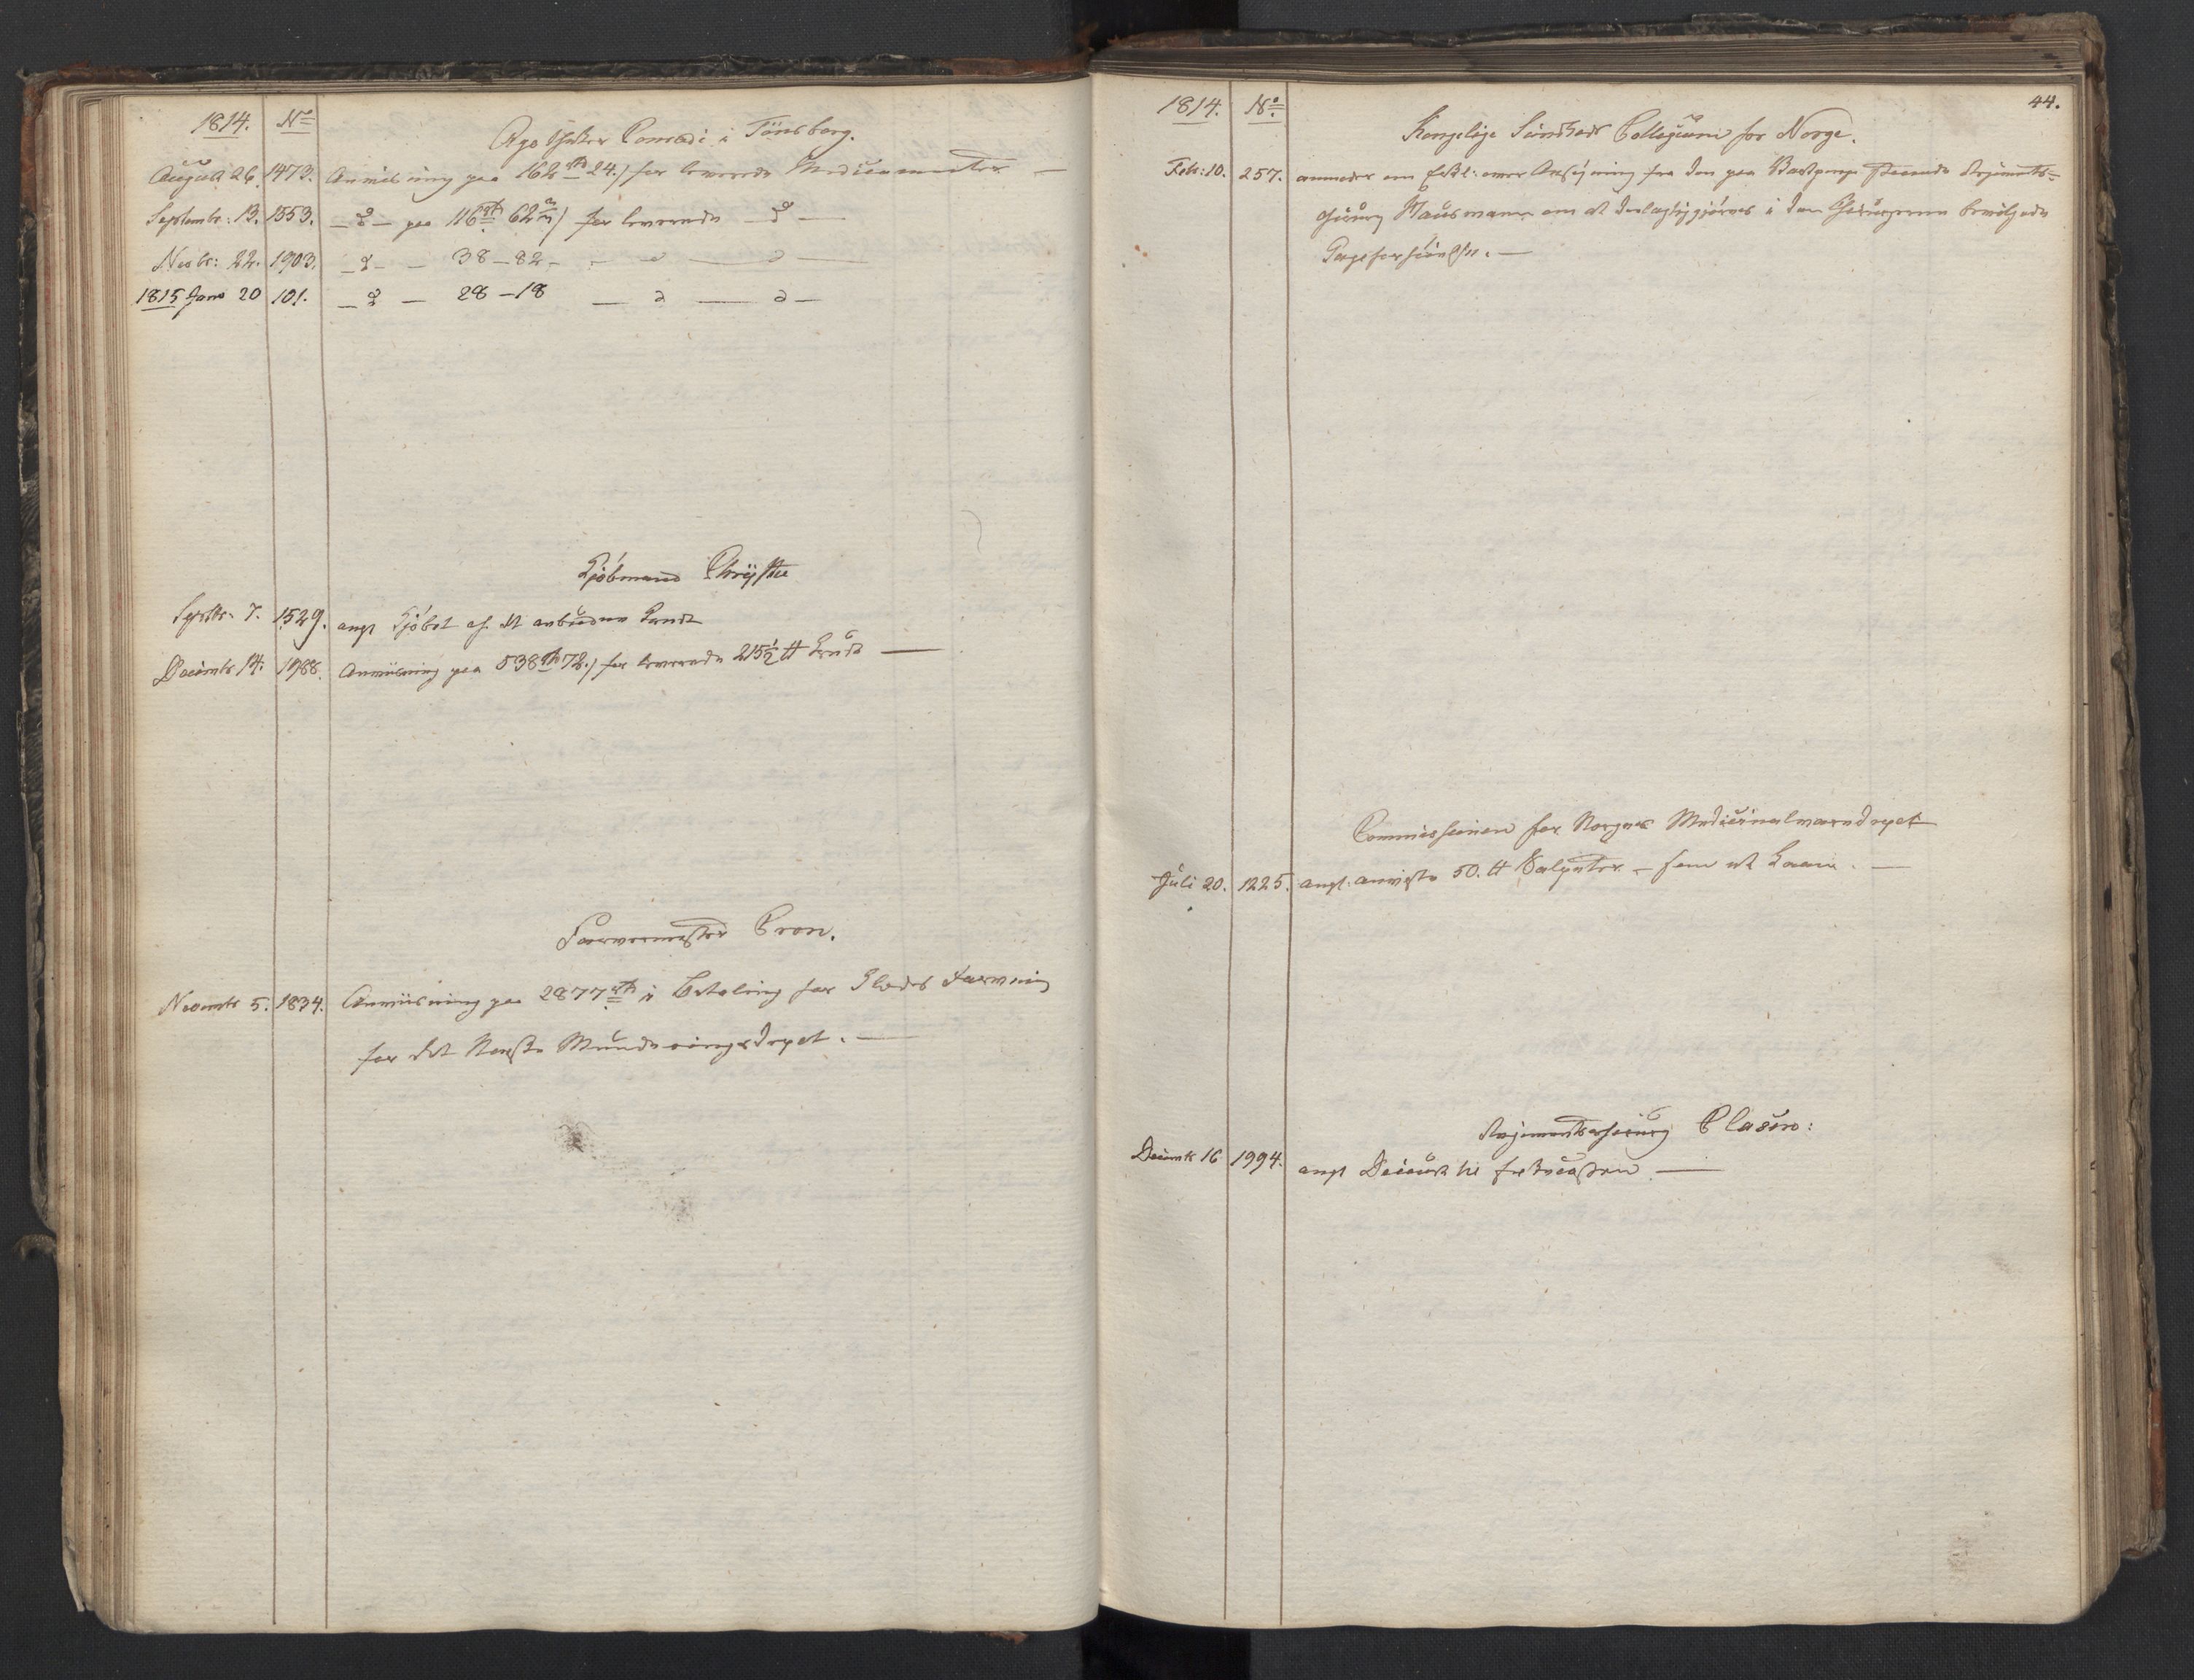 1814. No
Apotheker Conradi i Tönsberg.
August 26. 1473. Anviisning paa 162 rbd 24 s for leverede Medicamenter —
Septembr: 13. 1553. — do — paa 116 rbd 62 s for leverede — do —
Novbr: 22. 1903. — do — — 38 – 82 – — do — do —
1815 Janv 20 101. — do — 28 – 18 — do — do —
Kjöbmand Chrystie
Septbr. 7. 1529. angl Kjöbet af et anbuden
Decembr 14. 1988. Anviisning paa 538 rbd 72 s for leverede 215½ ℔ Krudt —
Farvermester Cron.
Novembr 5. 1834. Anviisning paa 2877 rbd i Betaling for Klædes Farvning
for det Norske Munderingsdepot. —
1814. No. 44.
Kongelige Sundheds Collegium for Norge.
Feb: 10. 257. anmoder om Erkl: over Ansögning fra den paa Vartpenge staaende Regiments-
chirurg Hausmann om at deelagtiggjöres i den Chirurgerne bevilgede
Gageforhöielse. —
Commissionen for Norges Medicinalvaredepot
Juli 20. 1225. angl. anviiste 50 ℔ Salpeter – som et Laan. —
Regimentschirurg Clasen:
Decembr 16 1994. angl